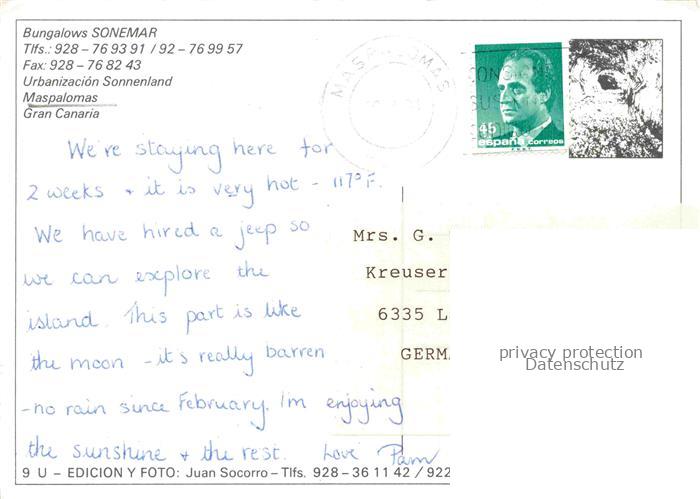 Bungalows SONEMAR
Tlfs.: 928 - 76 93 91 / 92 - 76 99 57
Fax: 928 - 76 82 43
Urbanización Sonnenland
Maspalomas
Gran Canaria
MASPALOMAS
45
españa correos
We're staying here for
2 weeks + it is very hot - 117°F.
We have hired a jeep so
we can explore the
island. This part is like
the moon - it's really barren
- no rain since February. I'm enjoying
the sunshine + the rest. Love Pam
Mrs. G.
Kreuser
6335 L
GERMA
privacy protection
Datenschutz
9 U - EDICION Y FOTO: Juan Socorro - Tlfs. 928 - 36 11 42 / 922